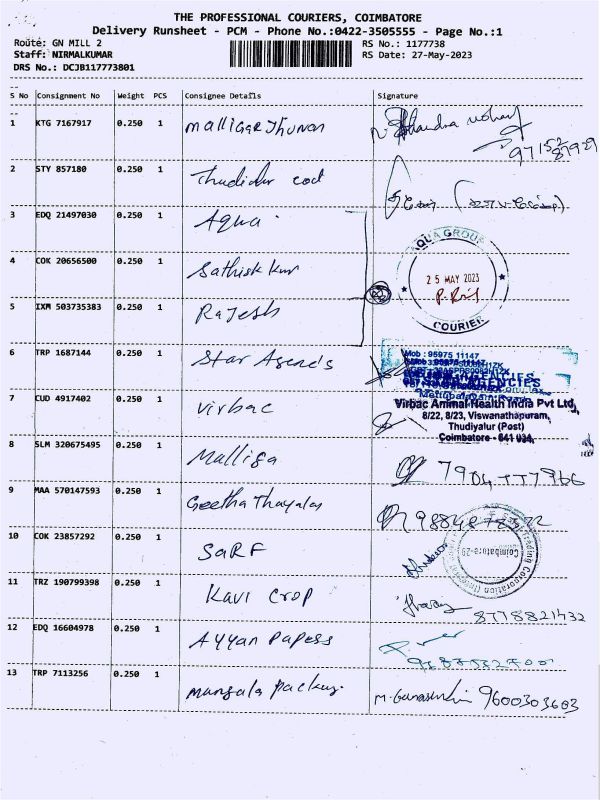 THE PROFESSIONAL COURIERS, COIMBATORE
Delivery Runsheet - PCM - Phone No.:0422-3505555 - Page No.:1
Route: GN MILL 2
RS No.: 1177738
Staff: NIRMALKUMAR
RS Date: 27-May-2023
DRS No.: DCJB117773801
S No Consignment No Weight PCS Consignee Details Signature
1 KTG 7167917 0.250 1
2 STY 857180 0.250 1 cod
3 EDQ 21497030 0.250 1 Aqua
4 COK 20656500 0.250 1 Sathish kur
5 IXM 503735383 0.250 1 Rajesh
AQUA GROUP
25 MAY 2023
COURIER
6 TRP 1687144 0.250 1 Star Agencis
Mob : 95975 11147
AGENCIES
7 CUD 4917402 0.250 1 Virbac
Virbac Animal Health India Pvt Ltd,
8/22, 8/23, Viswanathapuram,
Thudiyalur (Post)
Coimbatore - 641 034.
8 SLM 320675495 0.250 1 Malliga
9 MAA 570147593 0.250 1 Geetha Thayalan
10 COK 23857292 0.250 1 SARF
Coimbatore-29
11 TRZ 190799398 0.250 1 Kavi crop 8778821432
12 EDQ 16604978 0.250 1 Ayyan Papess
13 TRP 7113256 0.250 1 Mangala packug. 9600303603